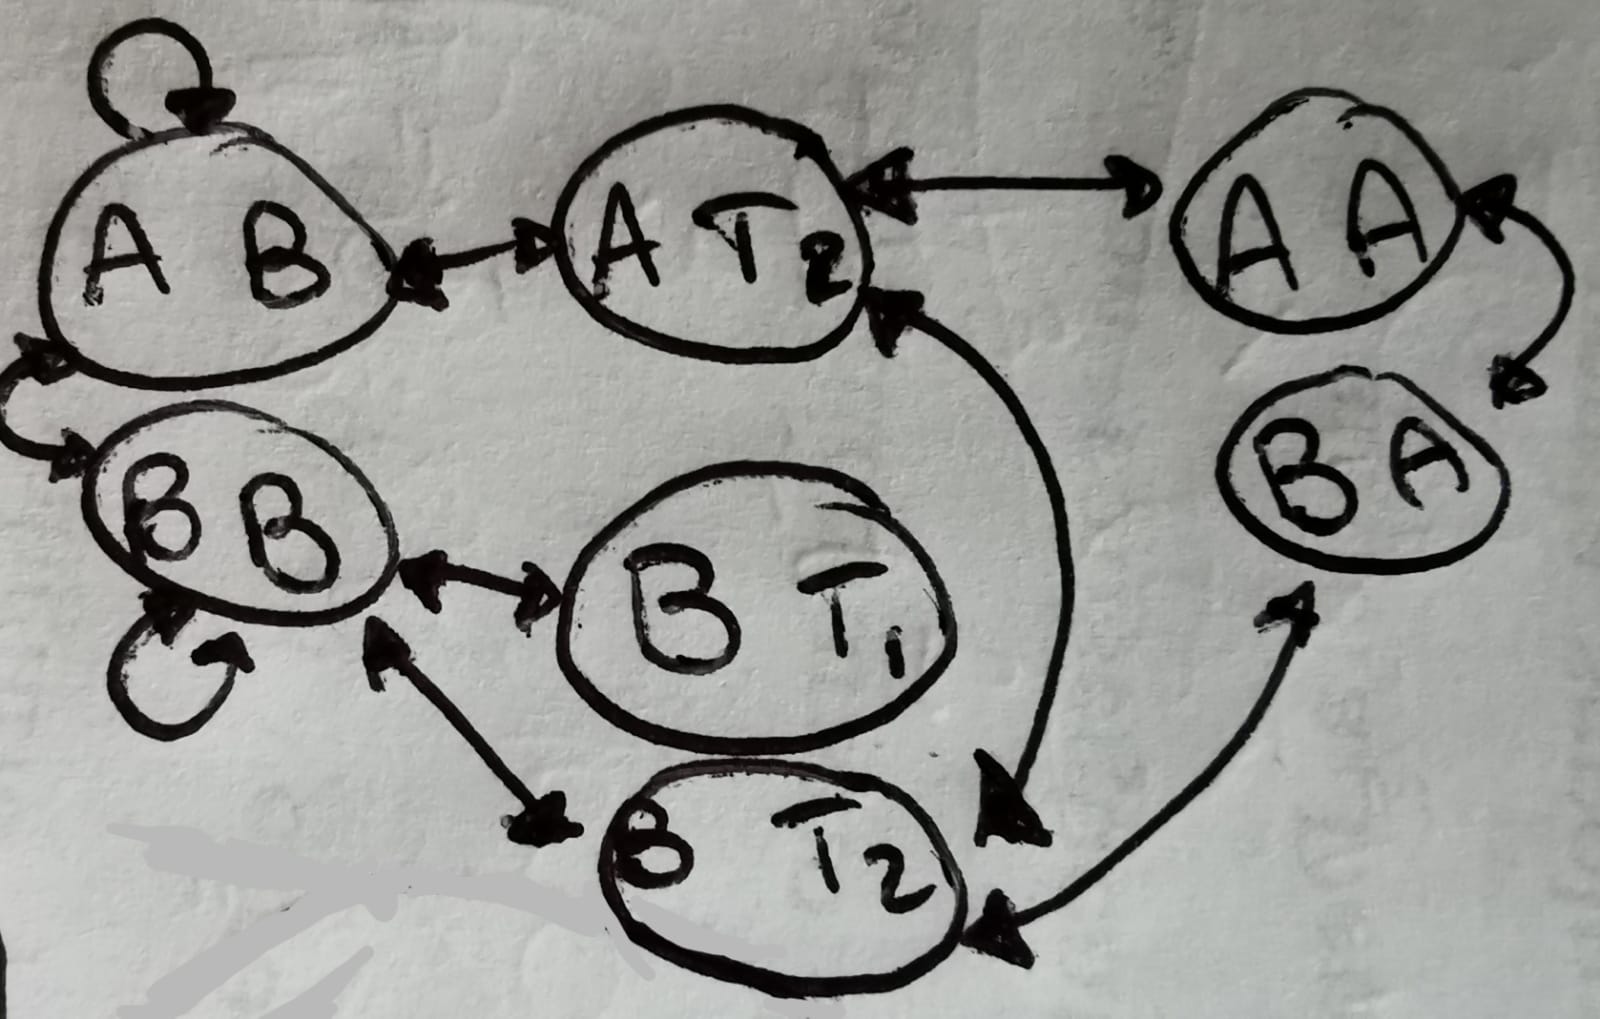 A B
A T2
A A
B B
B T1
B A
B T2